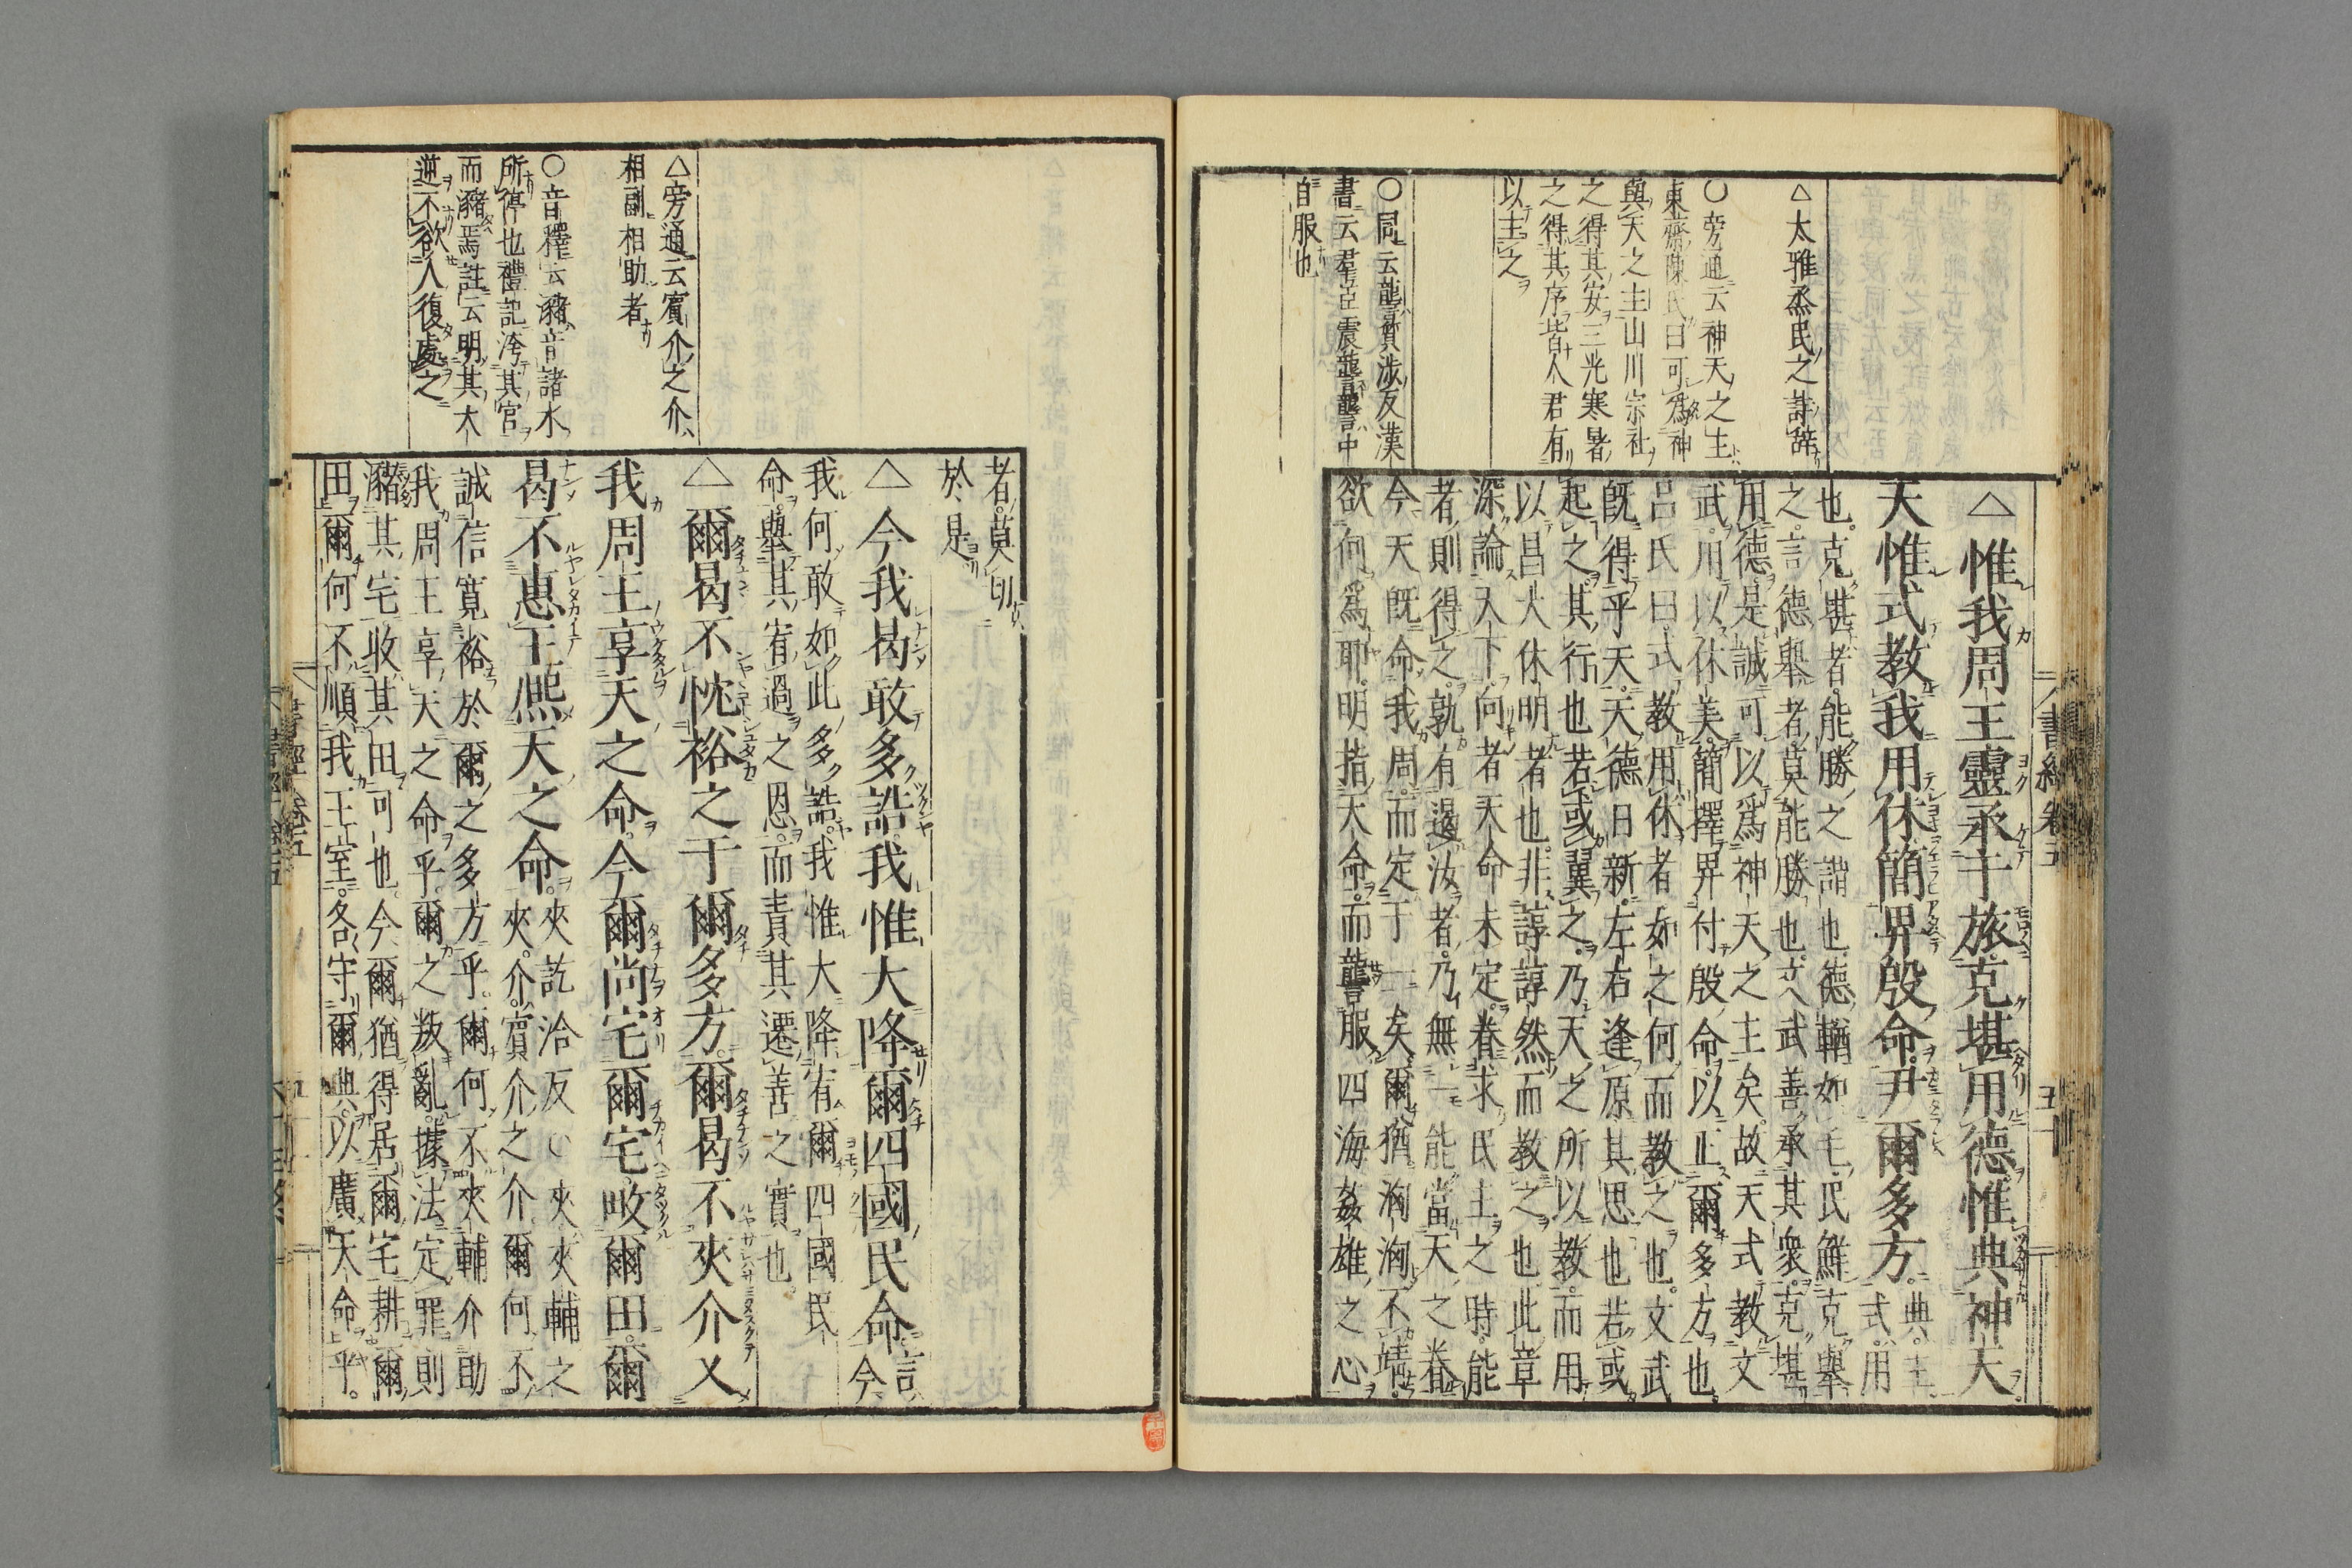 △惟我周王靈承于旅克堪用德惟典神天
天惟式教我用休簡畀殷命尹爾多方
典主
式用
也克堪者能勝之謂也德輶如毛民鮮克舉
之言德舉者莫能勝也文武善承其衆克堪
用德是誠可以爲神天之主矣故天式教文
武用以休美簡擇畀付殷命以正爾多方也
呂氏曰式教用休者如之何而教之也文武
既得乎天天德日新左右逢原其思也若或
起之其行也若或翼之乃天之所以教而用
以昌大休明者也非諄諄然而教之也此章
深論天下向者天命未定眷求民主之時能
者則得之孰有遏汝者乃無一能當天之眷
今天既命我周而定于一矣爾猶洶洶不靖
欲何爲耶明指天命而讋服四海姦雄之心
△大雅烝民之詩辭
○旁通云神天之主
東齋陳氏曰可爲神
與天之主山川宗社
之得其安三光寒暑
之得其序皆人君有
以主之
○同云讋質涉反漢
書云羣臣震讋讋中
自服也
書經卷五
者莫切
於是
△今我曷敢多誥我惟大降爾四國民命
言
今
我何敢如此多誥我惟大降宥爾四國民
命舉其宥過之恩而責其遷善之實也
△爾曷不忱裕之于爾多方爾曷不夾介乂
我周王享天之命今爾尚宅爾宅畋爾田爾
曷不惠王熙天之命
夾訖洽反○夾夾輔之
夾介賓介之介爾何不
誠信寬裕於爾之多方乎爾何不夾輔介助
我周王享天之命乎爾之叛亂據法定罪則
瀦其宅收其田可也今爾猶得居爾宅耕爾
田爾何不順我王室各守爾典以廣天命乎
△旁通云賓介之介
相副相助者
○音釋云瀦音諸水
所停也禮記洿其官
而瀦焉註云明其大
逆不欲人復處之
書經卷五